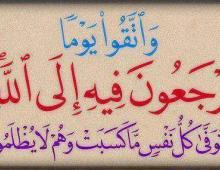 وَاتَّقُواْ يَوْمًا
رْجَعُونَ فِيهِ إِلَى اللَّهِ
تُوَفَّى كُلُّ نَفْسٍ مَّا كَسَبَتْ وَهُمْ لَا يُظْلَمُو